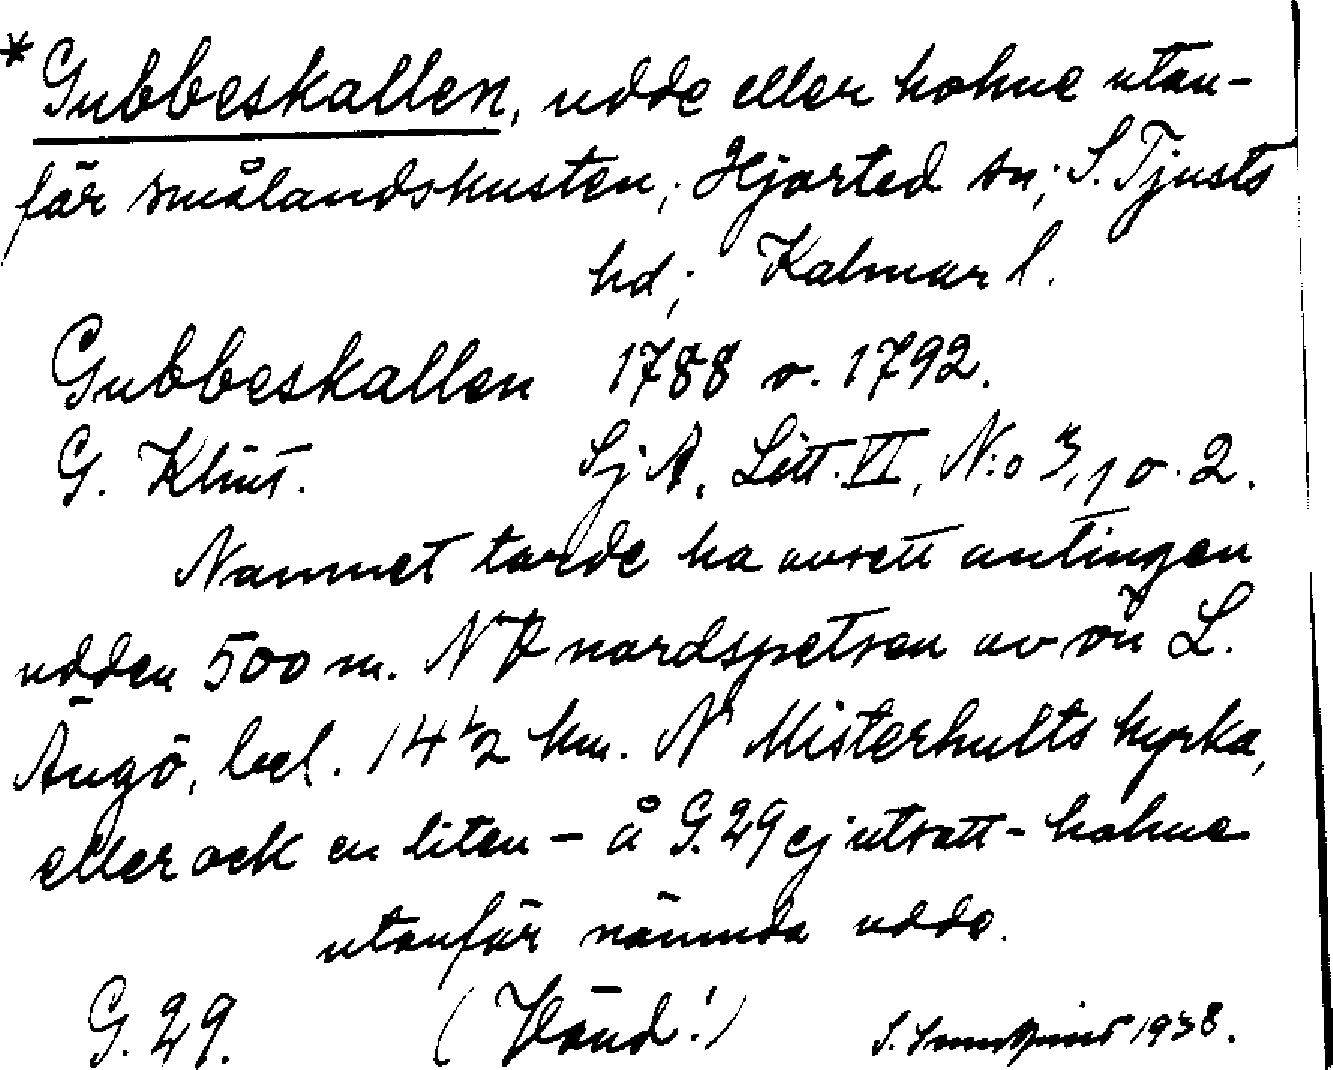 * Gubbeskallen, udde eller holme utan-
för smålandskusten; Hjorted sn; S. Tjusts
hd; Kalmar l.
Gubbeskallen 1788 o. 1792.
G. Klint. Sj A, Litt. VI, N:o 3, 1 o. 2.
Namnet torde ha avsett antingen
udden 500 m. NV nordspetsen av ön L.
Ängö, bel. 14 1/2 km. N Misterhults kyrka,
eller ock en liten - å G. 29 ej utsatt - holme
utanför nämnda udde.
G. 29. (Vänd!) S. 1938.